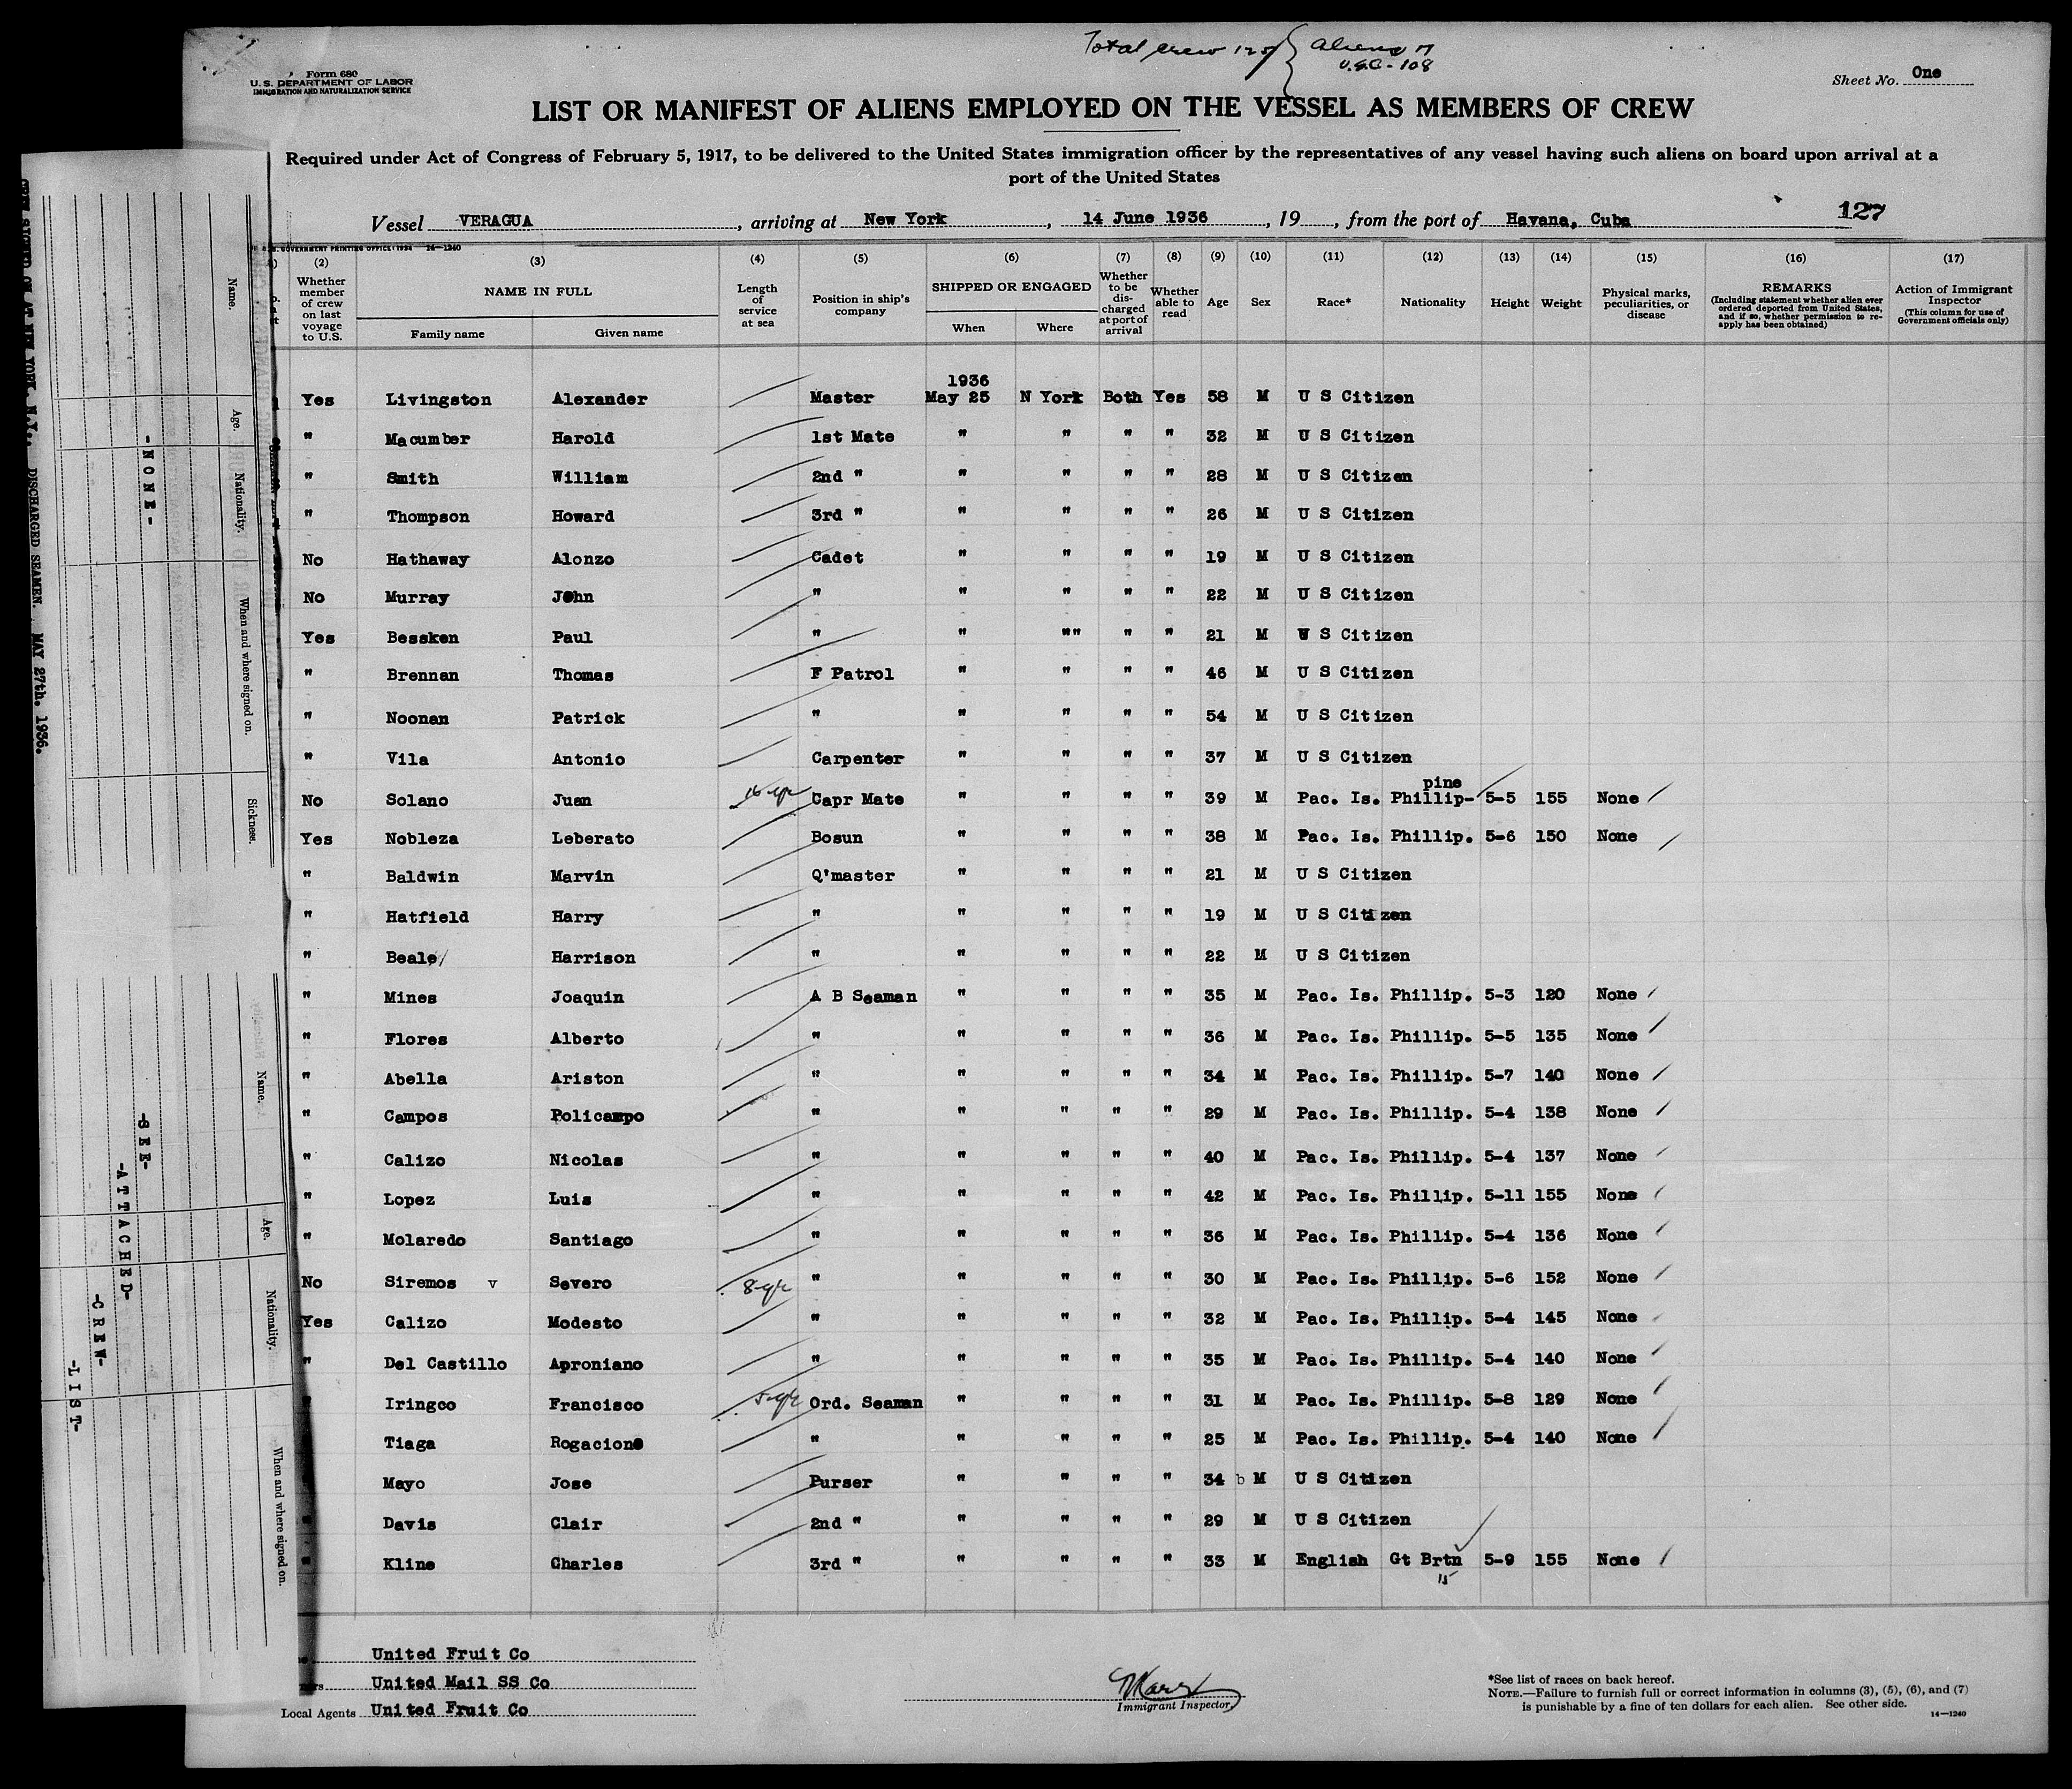 Total crew 125 { Aliens 17
U.S.C - 108
Form 680
U. S. DEPARTMENT OF LABOR
IMMIGRATION AND NATURALIZATION SERVICE
Sheet No. One
LIST OR MANIFEST OF ALIENS EMPLOYED ON THE VESSEL AS MEMBERS OF CREW
Required under Act of Congress of February 5, 1917, to be delivered to the United States immigration officer by the representatives of any vessel having such aliens on board upon arrival at a
port of the United States
127
Vessel VERAGUA, arriving at New York, 14 June 1936, 19, from the port of Havana, Cuba
U. S. GOVERNMENT PRINTING OFFICE: 1934 14—1240
(2) (3) (4) (5) (6) (7) (8) (9) (10) (11) (12) (13) (14) (15) (16) (17)
Whether member of crew on last voyage to U.S.
NAME IN FULL
Family name Given name
Length of service at sea
Position in ship's company
SHIPPED OR ENGAGED
When Where
Whether to be discharged at port of arrival
Whether able to read
Age Sex Race* Nationality Height Weight
Physical marks, peculiarities, or disease
REMARKS
(Including statement whether alien ever ordered deported from United States, and if so, whether permission to reapply has been obtained)
Action of Immigrant Inspector
(This column for use of Government officials only)
1936
Yes Livingston Alexander Master May 25 N York Both Yes 58 M U S Citizen
" Macumber Harold 1st Mate " " " " 32 M U S Citizen
" Smith William 2nd " " " " " 28 M U S Citizen
" Thompson Howard 3rd " " " " " 26 M U S Citizen
No Hathaway Alonzo Cadet " " " " 19 M U S Citizen
No Murray John " " " " " 22 M U S Citizen
Yes Bessken Paul " " "" " " 21 M U S Citizen
" Brennan Thomas F Patrol " " " " 46 M U S Citizen
" Noonan Patrick " " " " " 54 M U S Citizen
" Vila Antonio Carpenter " " " " 37 M U S Citizen
pine
No Solano Juan 16 yr Capr Mate " " " " 39 M Pac. Is. Phillip- 5-5 155 None
Yes Nobleza Leberato Bosun " " " " 38 M Pac. Is. Phillip. 5-6 150 None
" Baldwin Marvin Q'master " " " " 21 M U S Citizen
" Hatfield Harry " " " " " 19 M U S Citizen
" Beale Harrison " " " " " 22 M U S Citizen
" Mines Joaquin A B Seaman " " " " 35 M Pac. Is. Phillip. 5-3 120 None
" Flores Alberto " " " " " 36 M Pac. Is. Phillip. 5-5 135 None
" Abella Ariston " " " " " 34 M Pac. Is. Phillip. 5-7 140 None
" Campos Policampo " " " " " 29 M Pac. Is. Phillip. 5-4 138 None
" Calizo Nicolas " " " " " 40 M Pac. Is. Phillip. 5-4 137 None
" Lopez Luis " " " " " 42 M Pac. Is. Phillip. 5-11 155 None
" Molaredo Santiago " " " " " 36 M Pac. Is. Phillip. 5-4 136 None
No Siremos v Severo 8 yr " " " " " 30 M Pac. Is. Phillip. 5-6 152 None
Yes Calizo Modesto " " " " " 32 M Pac. Is. Phillip. 5-4 145 None
" Del Castillo Aproniano " " " " " 35 M Pac. Is. Phillip. 5-4 140 None
" Iringco Francisco 5 yr Ord. Seaman " " " " 31 M Pac. Is. Phillip. 5-8 129 None
Tiaga Rogacione " " " " " 25 M Pac. Is. Phillip. 5-4 140 None
Mayo Jose Purser " " " " 34 b M U S Citizen
" Davis Clair 2nd " " " " " 29 M U S Citizen
" Kline Charles 3rd " " " " " 33 M English Gt Brtn 5-9 155 None
15
United Fruit Co
United Mail SS Co
Local Agents United Fruit Co
Immigrant Inspector
*See list of races on back hereof.
NOTE.—Failure to furnish full or correct information in columns (3), (5), (6), and (7)
is punishable by a fine of ten dollars for each alien. See other side.
14—1240
DISCHARGED SEAMEN. MAY 27th. 1936.
Name. Age. Nationality. When and where signed on. Sickness.
-NONE-
Name. Age. Nationality. When and where signed on.
-SEE-
-ATTACHED-
-CREW-
-LIST-